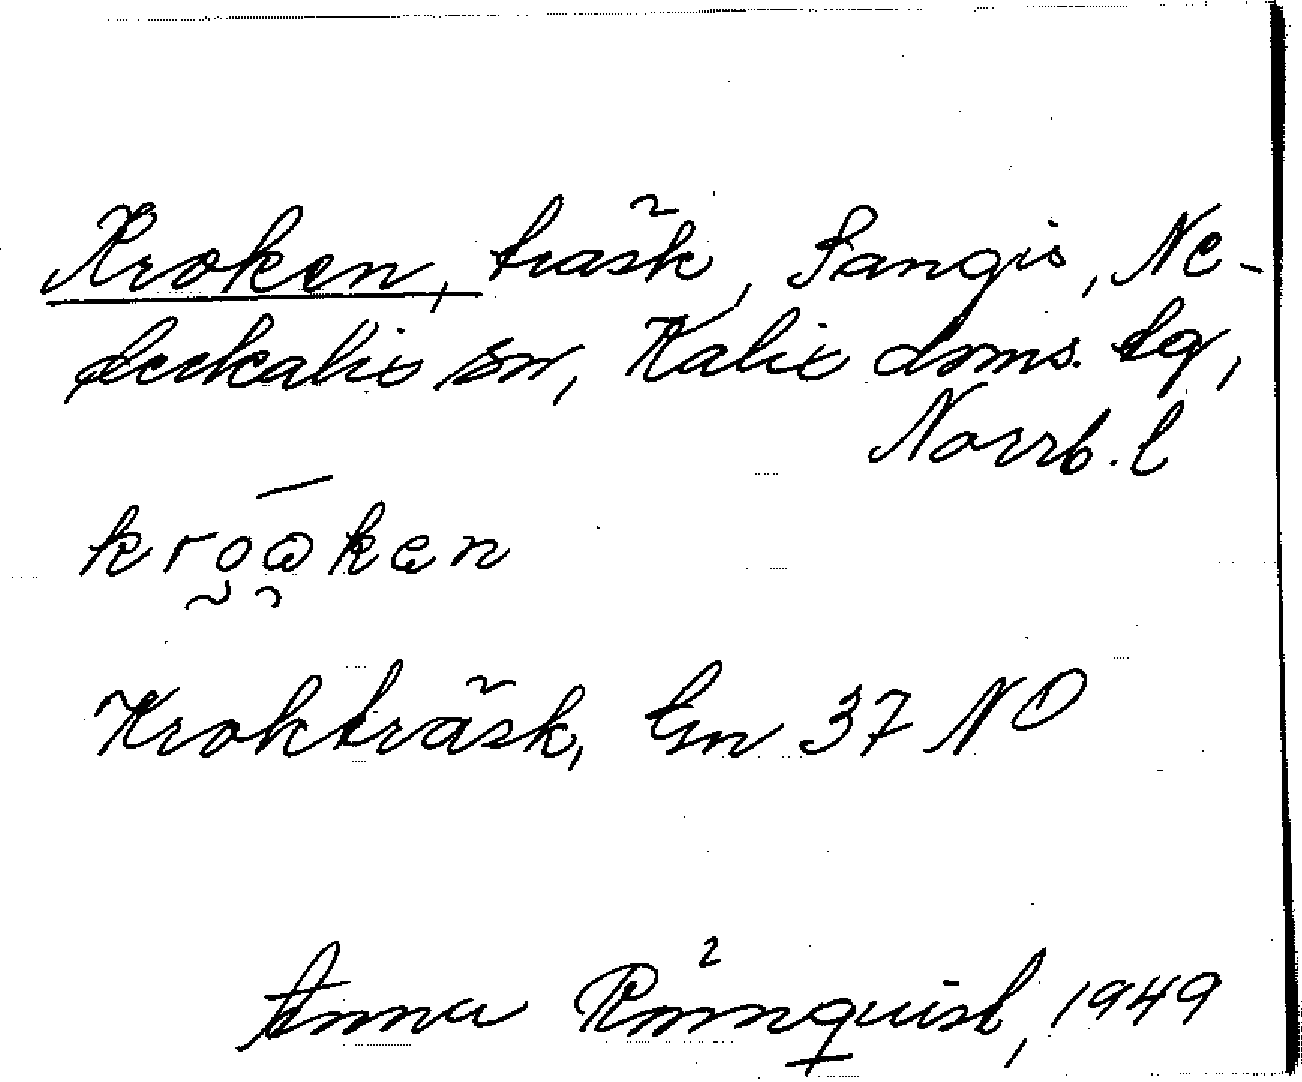 Kroken, träsk, Sangis, Ne-
derkalix sn, Kalix doms. tg,
Norrb. l
kroaken
Krokträsk, Gn 37 NO
Anna Rönnquist, 1949